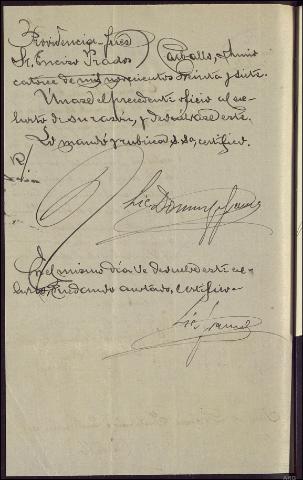 Providencia Juez
Sr. Enciso Prados } Carballo, a Junio
catorce de mil novecientos treinta y siete.
Unase el precedente oficio al ex-
horto de su razón, y devuélvase este.
Lo mandó y rubrica S.Sª, certifico.
Lic
En el mismo día se devuelve este ex-
horto, quedando anotado, certifico.
Lic